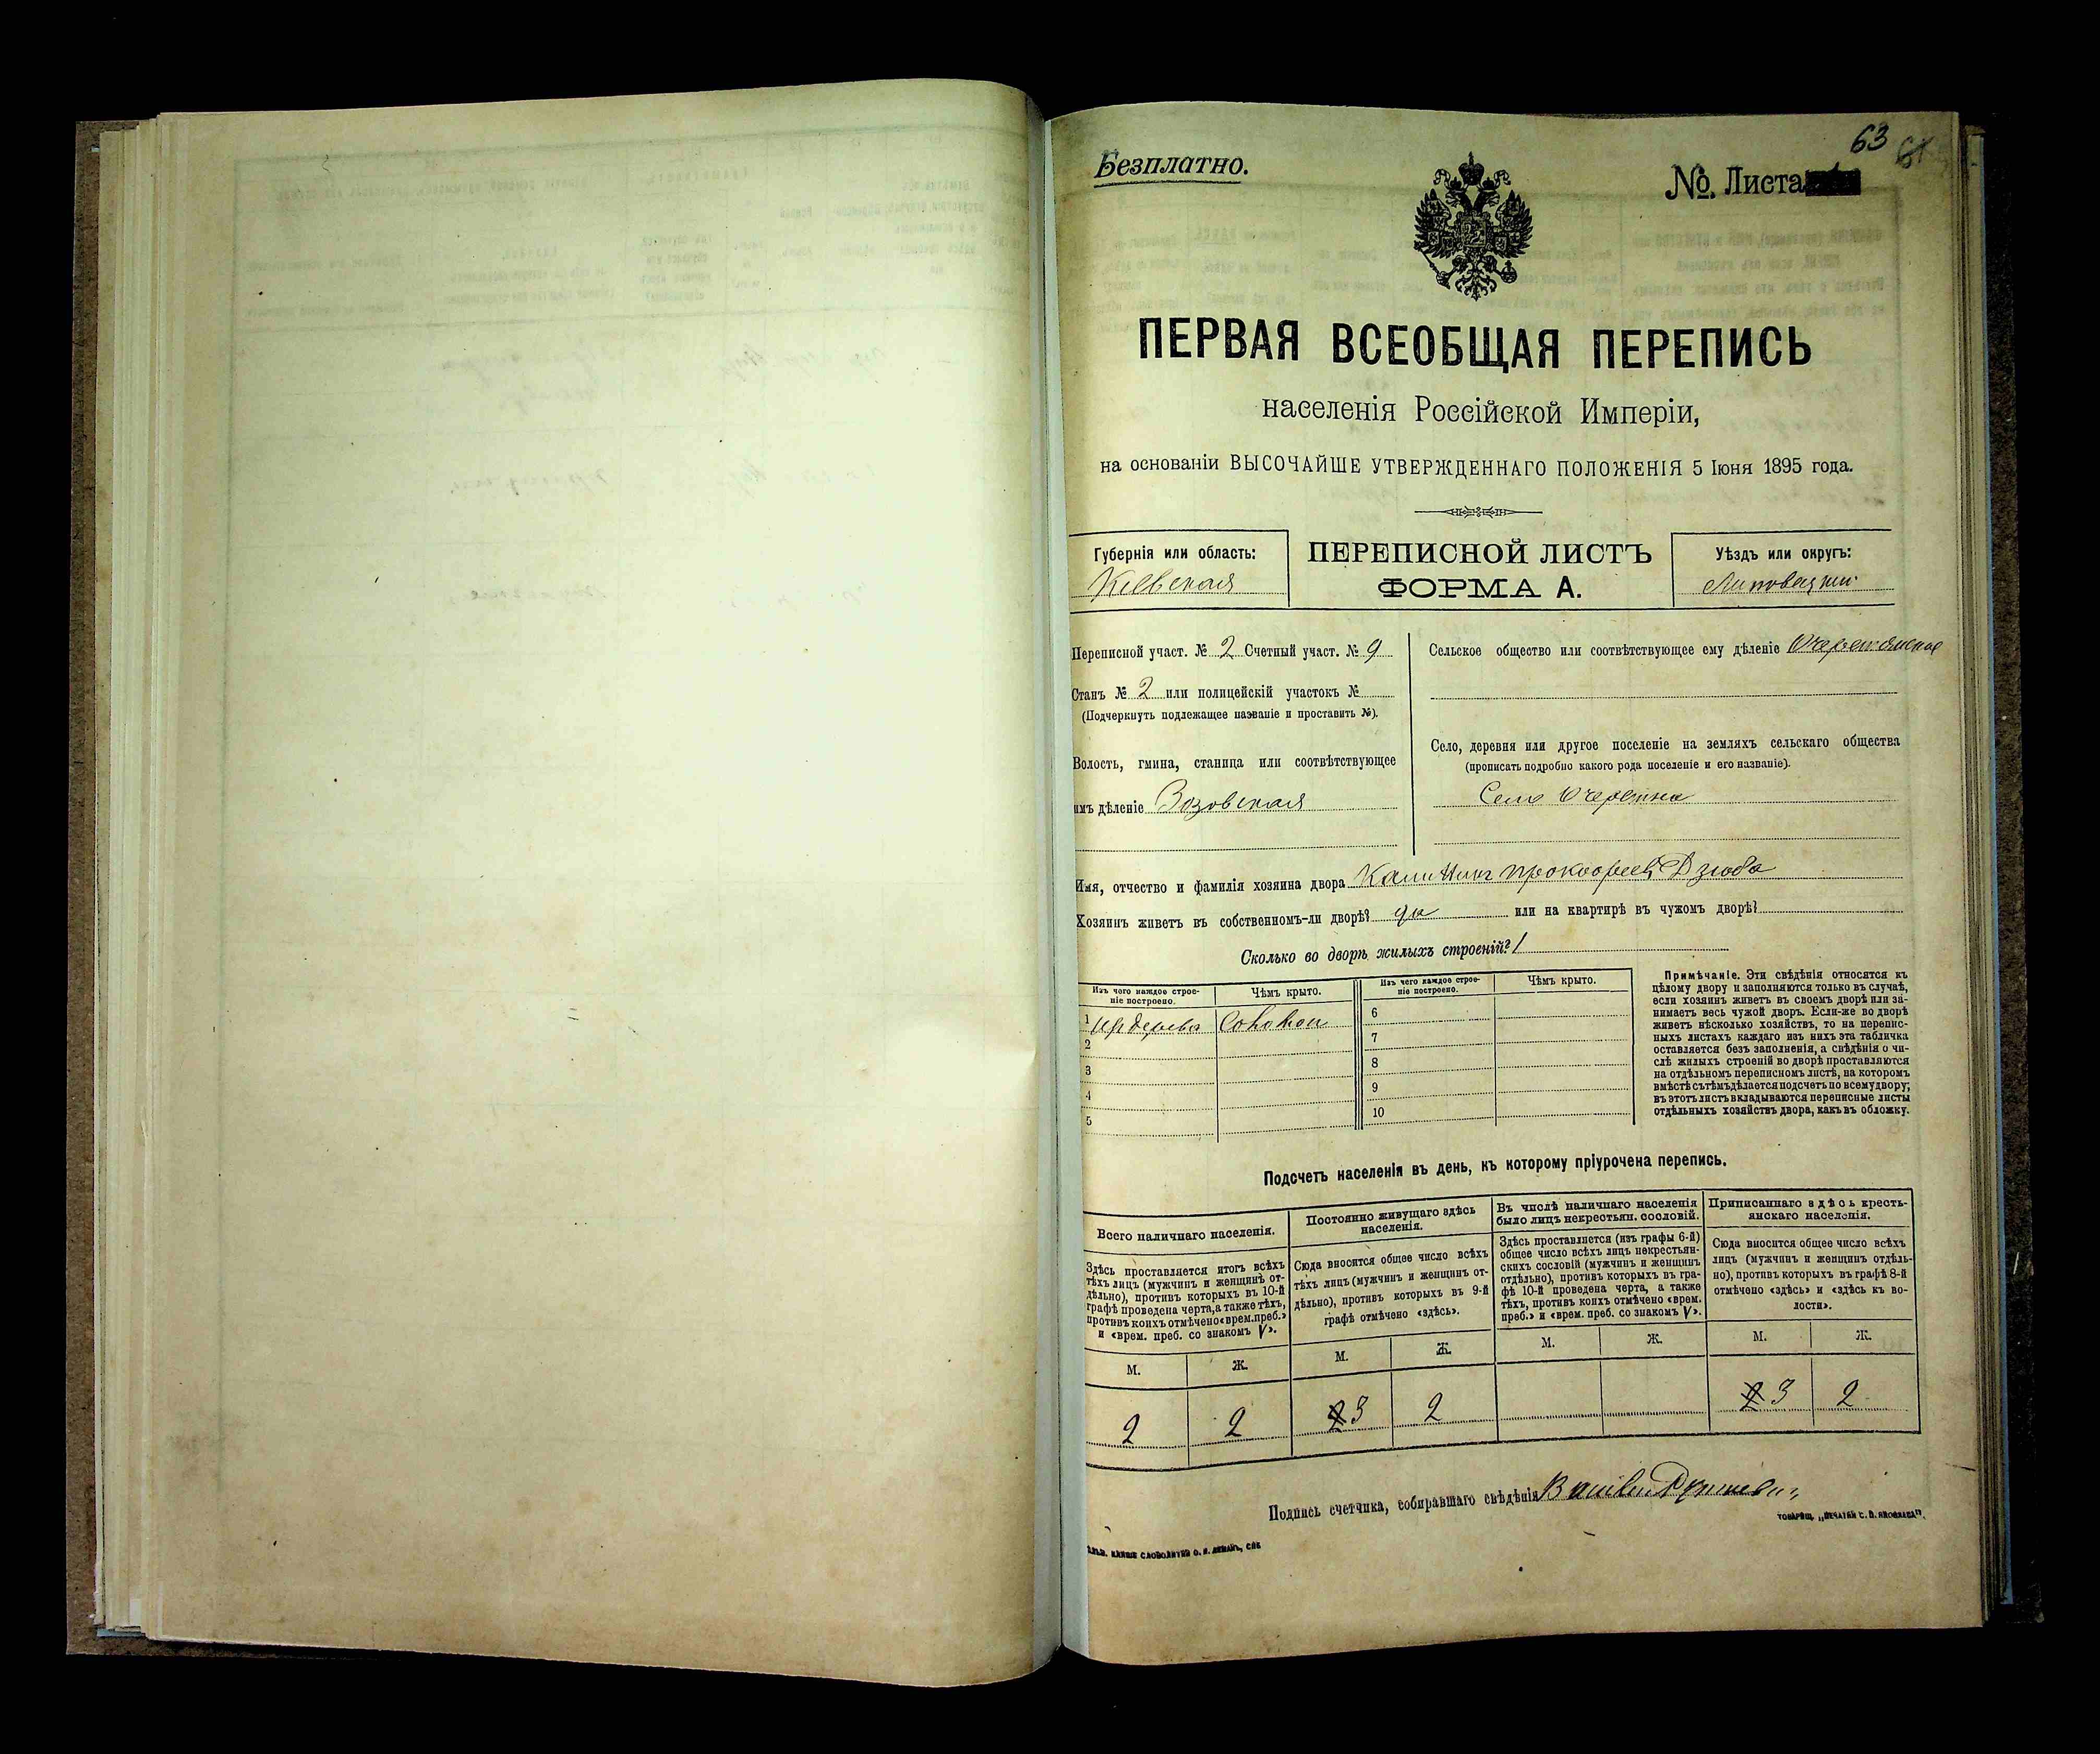 63
Безплатно.
№ Листа
ПЕРВАЯ ВСЕОБЩАЯ ПЕРЕПИСЬ
населенія Россійской Имперіи,
на основаніи ВЫСОЧАЙШЕ УТВЕРЖДЕННАГО ПОЛОЖЕНІЯ 5 Іюня 1895 года.
Губернія или область:
Кіевская
ПЕРЕПИСНОЙ ЛИСТЪ
ФОРМА А.
Уѣздъ или округъ:
Липовецкій
Переписной участ. № 2 Счетный участ. № 9
Станъ № 2 или полицейскій участокъ №
(Подчеркнуть подлежащее названіе и проставить №).
Волость, гмина, станица или соотвѣтствующее
имъ дѣленіе Зозовская
Сельское общество или соотвѣтствующее ему дѣленіе Очеретянское
Село, деревня или другое поселеніе на земляхъ сельскаго общества
(прописать подробно какого рода поселеніе и его названіе).
Село Очеретна
Имя, отчество и фамилія хозяина двора Калинникъ Прокофіевъ Дзюба
Хозяинъ живетъ въ собственномъ-ли дворѣ? да или на квартирѣ въ чужомъ дворѣ?
Сколько во дворѣ жилыхъ строеній? 1
Изъ чего каждое строе-
ніе построено.
Чѣмъ крыто.
Изъ чего каждое строе-
ніе построено.
Чѣмъ крыто.
1 изъ дерева Соломою
2
3
4
5
6
7
8
9
10
Примѣчаніе. Эти свѣдѣнія относятся къ
цѣлому двору и заполняются только въ случаѣ,
если хозяинъ живетъ въ своемъ дворѣ или за-
нимаетъ весь чужой дворъ. Если-же во дворѣ
живетъ нѣсколько хозяйствъ, то на перепис-
ныхъ листахъ каждаго изъ нихъ эта табличка
оставляется безъ заполненія, а свѣдѣнія о чи-
слѣ жилыхъ строеній во дворѣ проставляются
на отдѣльномъ переписномъ листѣ, на которомъ
вмѣстѣ съ тѣмъ дѣлается подсчетъ по всему двору;
въ этотъ листъ вкладываются переписные листы
отдѣльныхъ хозяйствъ двора, какъ въ обложку.
Подсчетъ населенія въ день, къ которому пріурочена перепись.
Всего наличнаго населенія.
Здѣсь проставляется итогъ всѣхъ
тѣхъ лицъ (мужчинъ и женщинъ от-
дѣльно), противъ которыхъ въ 10-й
графѣ проведена черта, а также тѣхъ,
противъ коихъ отмѣчено «врем. преб.»
и «врем. преб. со знакомъ V».
Постоянно живущаго здѣсь
населенія.
Сюда вносится общее число всѣхъ
тѣхъ лицъ (мужчинъ и женщинъ от-
дѣльно), противъ которыхъ въ 9-й
графѣ отмѣчено «здѣсь».
Въ числѣ наличнаго населенія
было лицъ некрестьян. сословій.
Здѣсь проставляется (изъ графы 6-й)
общее число всѣхъ лицъ некрестьян-
скихъ сословій (мужчинъ и женщинъ
отдѣльно), противъ которыхъ въ гра-
фѣ 10-й проведена черта, а также
тѣхъ, противъ коихъ отмѣчено «врем.
преб.» и «врем. преб. со знакомъ V».
Приписаннаго здѣсь кресть-
янскаго населенія.
Сюда вносится общее число всѣхъ
лицъ (мужчинъ и женщинъ отдѣль-
но), противъ которыхъ въ графѣ 8-й
отмѣчено «здѣсь» и «здѣсь къ во-
лости».
М. Ж. М. Ж. М. Ж. М. Ж.
2 2 2 3 2 2 3 2
Подпись счетчика, собиравшаго свѣдѣнія
ТОВАРИЩ. „ПЕЧАТНИ С. П. ЯКОВЛЕВА".
СЛОВОЛИТНИ О. И. ЛЕМАНЪ, СПБ